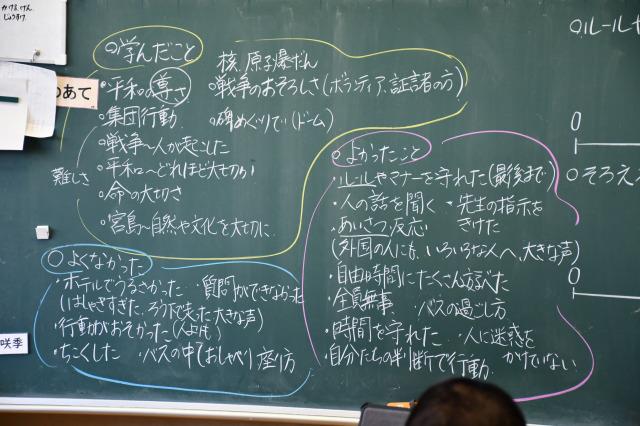 かける、けん
じょうすけ
のあて
咲季
○ルールや
○そろえ
○学んだこと
核、原子爆だん
○平和の尊さ
○戦争のおそろしさ(ボランティア、証話者の方)
○集団行動
○碑めぐりで(ドーム)
○戦争~人が起こした
難しさ
○平和~どれほど大切か
○命の大切さ
○宮島~自然や文化を大切に
○よかったこと
・ルールやマナーを守れた(最後まで)
・人の話を聞く ・先生の指示をきけた
・あいさつ、反応
(外国の人にも、いろいろな人へ、大きな声)
・自由時間にたくさん遊べた
・全員無事 ・バスの過ごし方
・時間を守れた ・人に迷惑をかけていない
・自分たちの判断で行動
○よくなかった
・ホテルでうるさかった ・質問ができなかった
(はしゃぎすぎた、ろうかで走った、大きな声)
・行動がおそかった(人よけ)
・ちこくした ・バスの中(おしゃべり)座り方